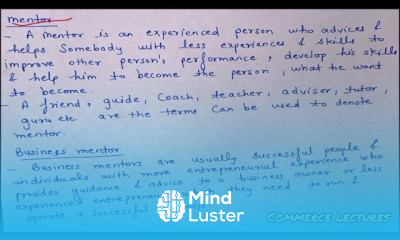 mentor
- A mentor is an experienced person who advices &
helps Somebody with less experiences & skills to
improve other person's performance, develop his skills
& help him to become the person, what he want
to become.
- A friend, guide, Coach, teacher, advisor, tutor,
guru etc are the terms Can be used to denote
mentor.
Business mentor
- Business mentors are usually successful people &
individuals with more entrepreneurial experience who
provides guidance & advice to a business owner or less
experienced they need to run &
operate a successful
Mind
Luster
COMMERCE LECTURES